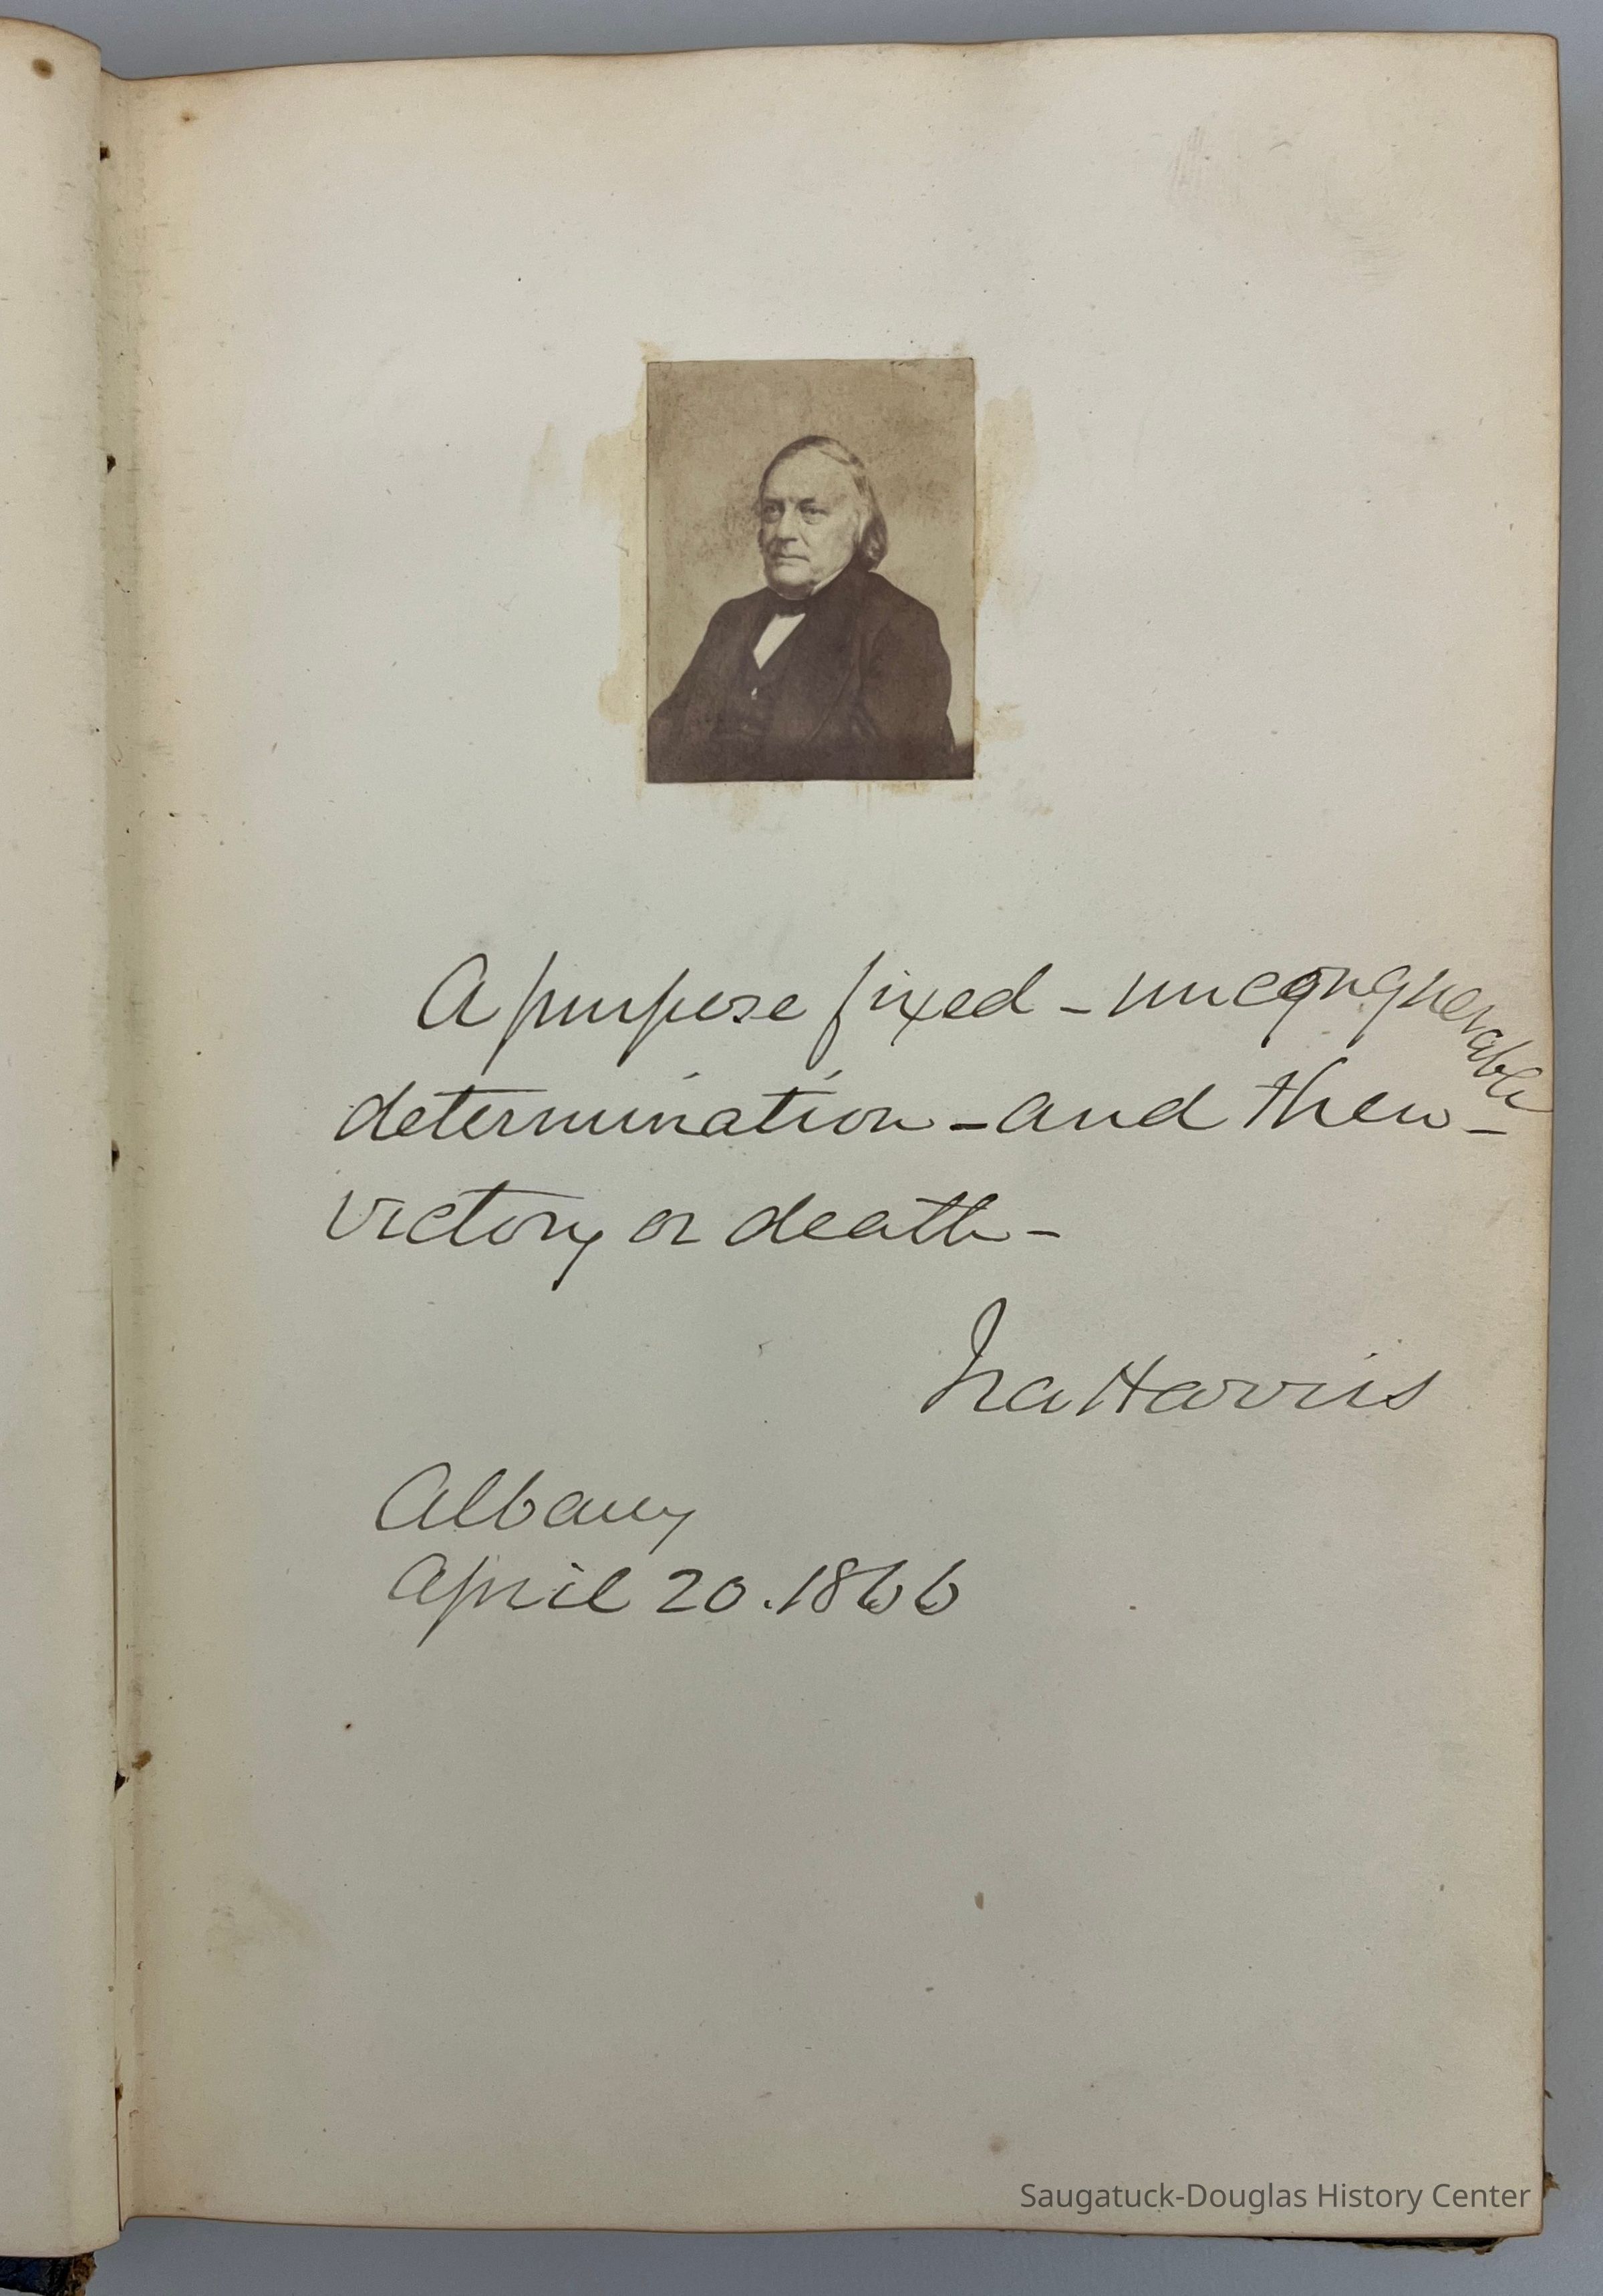 A purpose fixed - unconquerable
determination - and then -
victory or death -
Ira Harris
Albany
April 20. 1866
Saugatuck-Douglas History Center